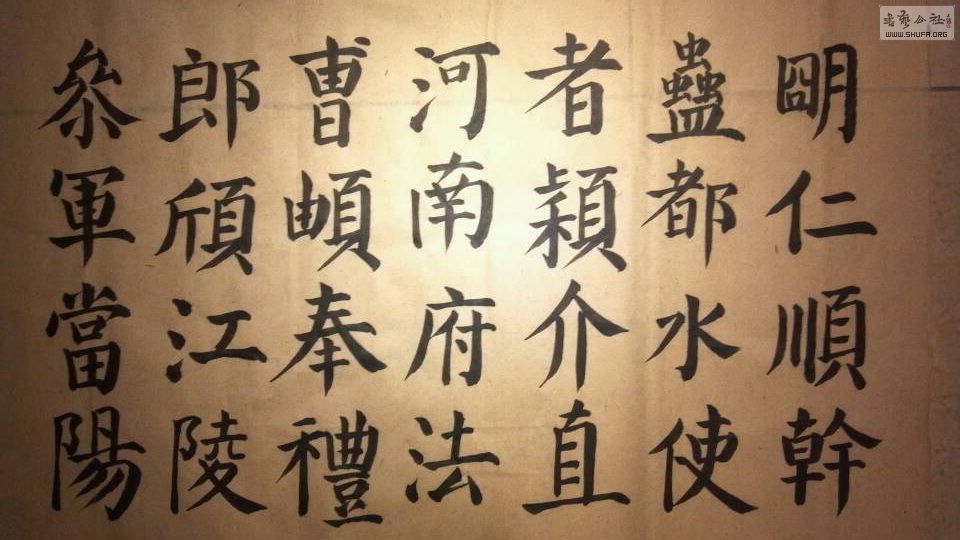 明仁順幹
蠱都水使
者穎介直
河南府法
曹頔奉禮
郎頎江陵
參軍當陽
書藝公社
WWW.SHUFA.ORG